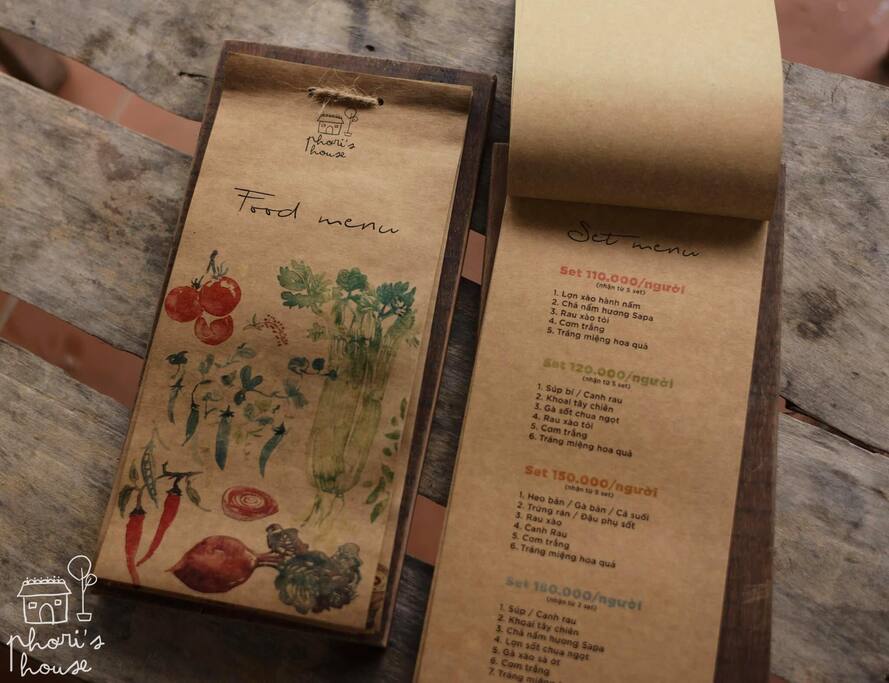 phori's
house
Food menu
Set menu
Set 110.000/người
(nhận từ 5 set)
1. Lợn xào hành nấm
2. Chả nấm hương Sapa
3. Rau xào tỏi
4. Cơm trắng
5. Tráng miệng hoa quả
Set 120.000/người
(nhận từ 5 set)
1. Súp bí / Canh rau
2. Khoai tây chiên
3. Gà sốt chua ngọt
4. Rau xào tỏi
5. Cơm trắng
6. Tráng miệng hoa quả
Set 150.000/người
(nhận từ 5 set)
1. Heo bản / Gà bản / Cá suối
2. Trứng rán / Đậu phụ sốt
3. Rau xào
4. Canh Rau
5. Cơm trắng
6. Tráng miệng hoa quả
/người
(nhận từ 2 set)
1. Súp / Canh rau
2. Khoai tây chiên
3. Chả nấm hương Sapa
4. Lợn sốt chua ngọt
5. Gà xào sả ớt
6. Cơm trắng
7. Tráng
phori's
house